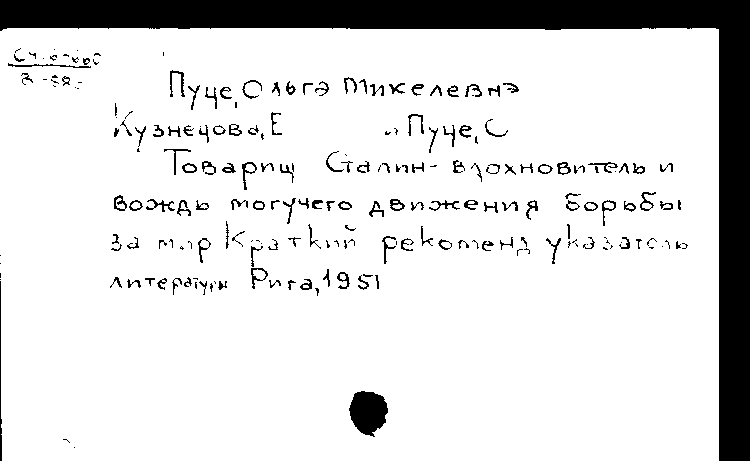 Пуце, Ольга Микелевна
Кузнецова, Е и Пуце, О
Товарищ Сталин - вдохновитель и
вождь могучего движения борьбы
за мир Краткий рекоменд указатель
литературы Рига, 1951